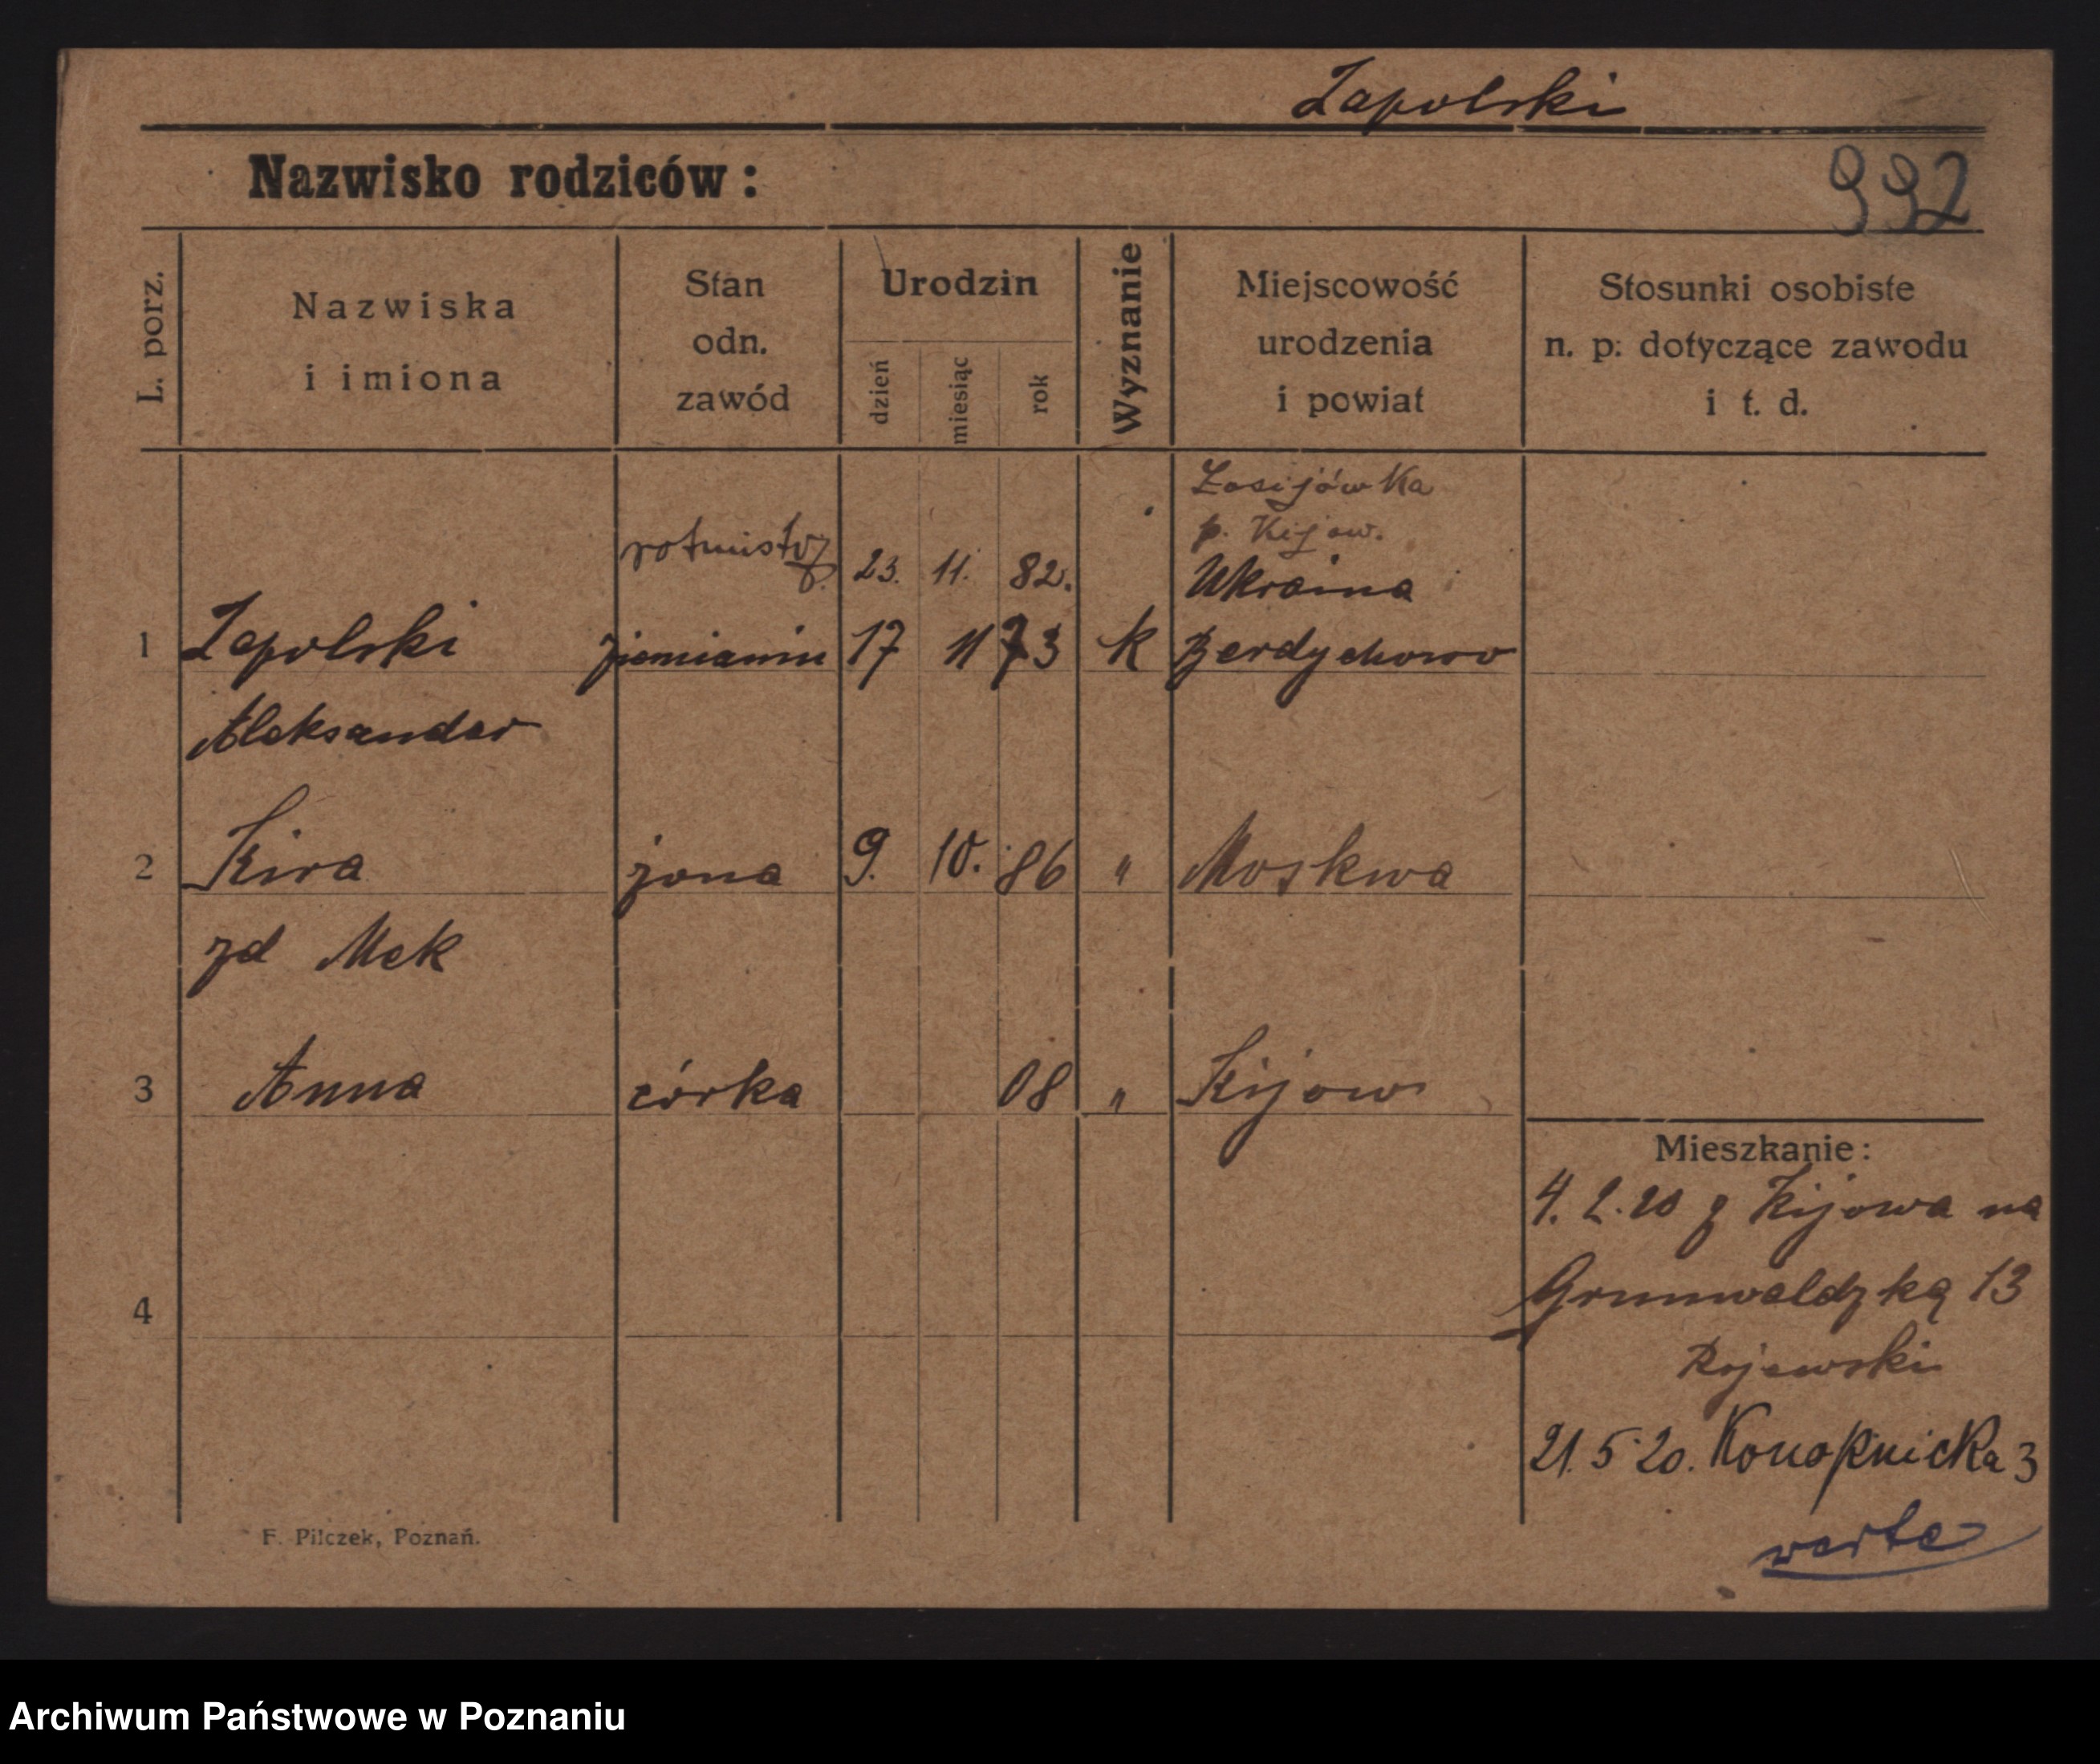 Zapolski
Nazwisko rodziców:
992
L. porz.
Nazwiska
i imiona
Stan
odn.
zawód
Urodzin
dzień
miesiąc
rok
Wyznanie
Miejscowość
urodzenia
i powiat
Stosunki osobiste
n. p: dotyczące zawodu
i t. d.
p. Kijow.
rotmistrz 23. 11. 82. Ukraina
1 Zapolski ziemianin 17 11 73 k Berdychowo
Aleksander
2 Kira żona 9. 10. 86 " Moskwa
zd Mek
3 Anna córka 08 " Kijow
Mieszkanie:
4. 2. 20 z Kijowa na
Grunwaldzką 13
4
Rojewski
21. 5 20. Konopnicka 3
verte
F. Pilczek, Poznań.
Archiwum Państwowe w Poznaniu